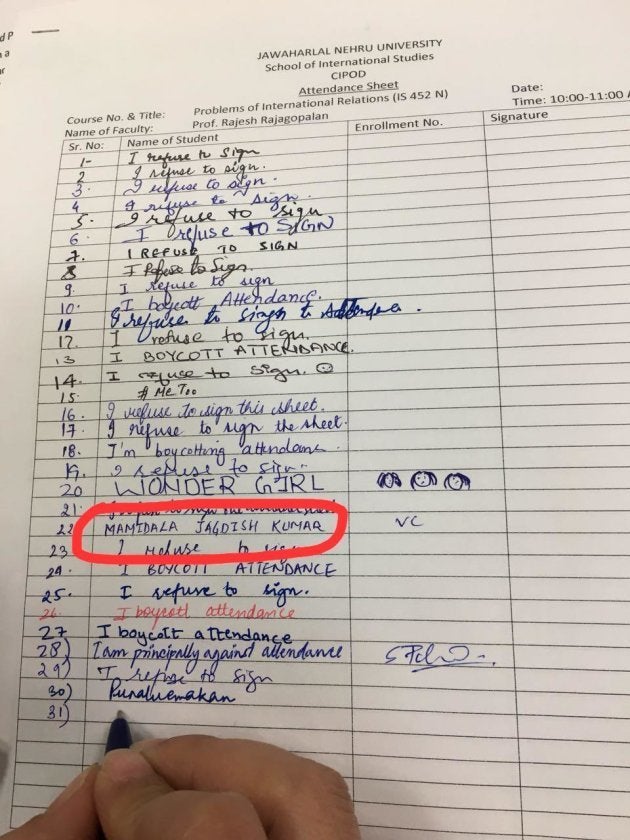 d P
JAWAHARLAL NEHRU UNIVERSITY
School of International Studies
CIPOD
Attendance Sheet
Course No. & Title: Problems of International Relations (IS 452 N) Date:
Name of Faculty: Prof. Rajesh Rajagopalan Time: 10:00-11:00 A
Sr. No: Name of Student Enrollment No. Signature
1- I refuse to sign
2 I refuse to sign.
3. I refuse to sign.
4 I refuse to sign.
5. I refuse to sign
6. I refuse to SIGN
7. I REFUSE TO SIGN
8 I Refuse to Sign.
9. I refuse to sign
10. I boycott Attendance.
11 I refuse to to
12. I refuse to sign.
13 I BOYCOTT ATTENDANCE.
14. I refuse to sign.
15. # Me Too
16. I refuse to sign this sheet.
17. I refuse to sign the sheet.
18. I'm boycotting
19. I refuse to sign.
20 WONDER GIRL
21.
22 MAMIDALA JAGDISH KUMAR VC
23 I refuse to sign
24. I BOYCOTT ATTENDANCE
25. I refuse to sign.
26. I boycott attendance
27 I boycott attendance
28) I am principally against attendance
29) I refuse to sign
30)
31)